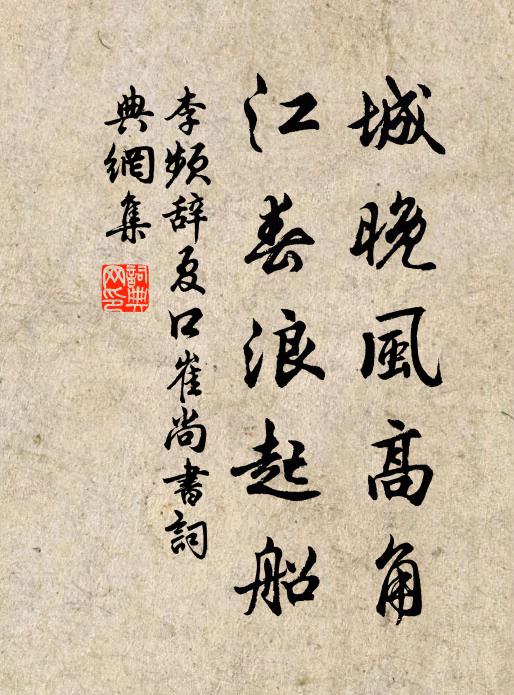 城晚風高角
江春浪起船
李頻辞夏口崔尚書詞
典網集
詞典
网印